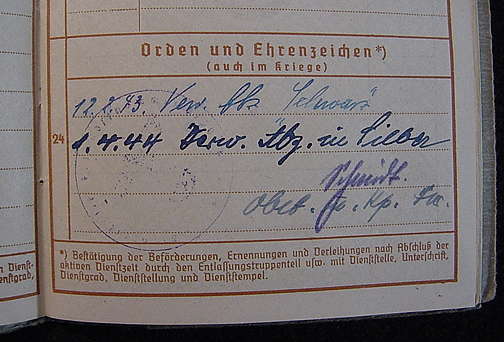 Orden und Ehrenzeichen*)
(auch im Kriege)
12.2.43. Verw. Abz. Schwarz
24
1.4.44 Verw. Abz. in Silber
Schmidt.
*) Bestätigung der Beförderungen, Ernennungen und Verleihungen nach Abschluß der
aktiven Dienstzeit durch den Entlassungstruppenteil usw. mit Dienststelle, Unterschrift,
Dienstgrad, Dienststellung und Dienststempel.